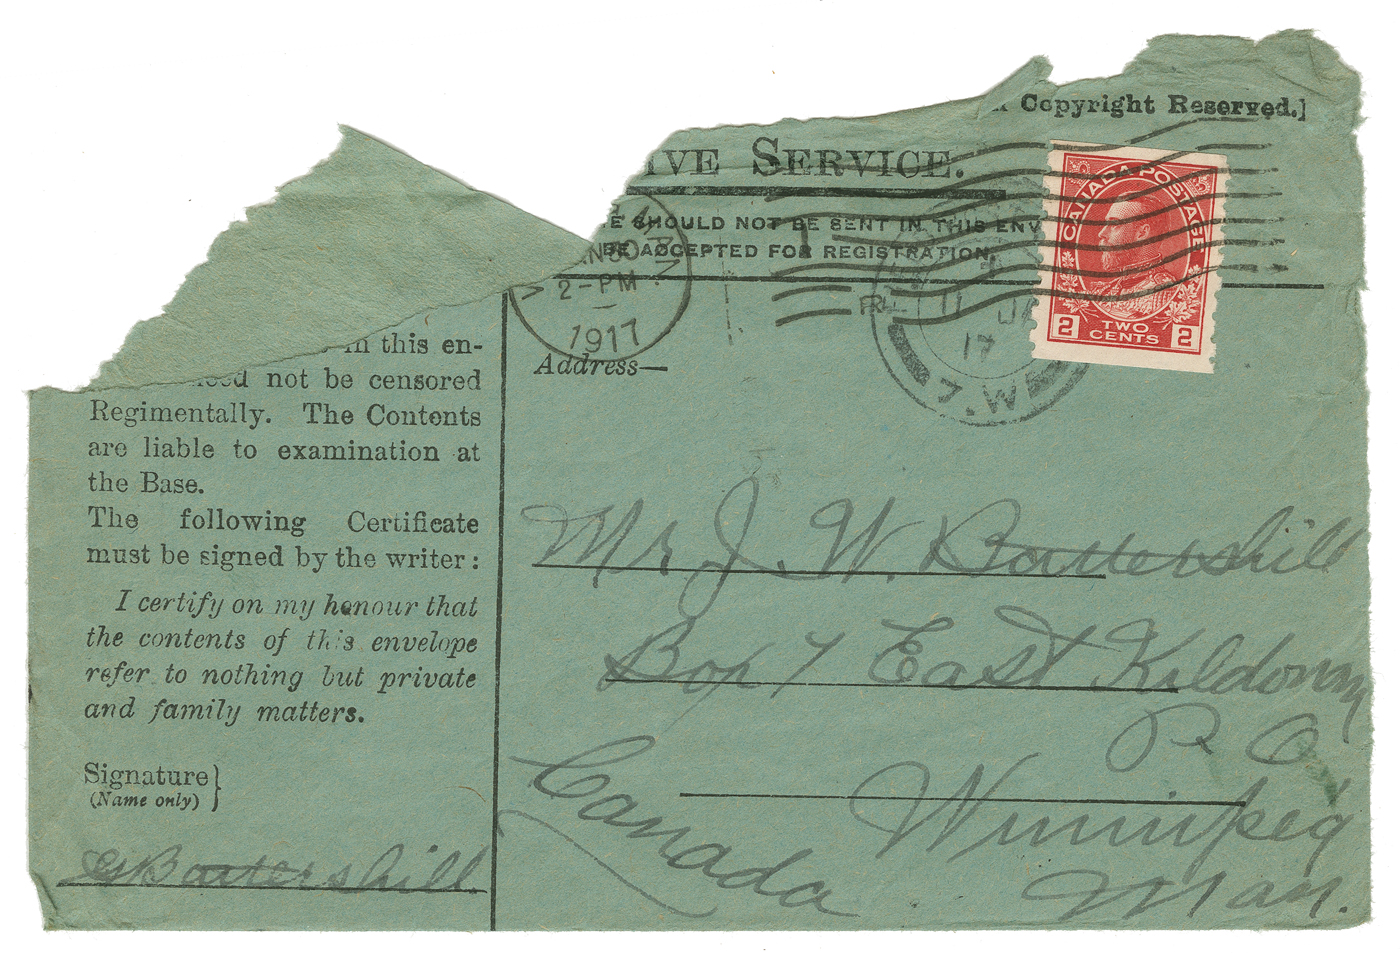 Copyright Reserved.]
IVE SERVICE.
E SHOULD NOT BE SENT IN THIS ENV
BE ACCEPTED FOR REGISTRATION.
CANADA POSTAGE
2 TWO CENTS 2
2-PM
1917
11 JA
17
7.W
in this en-
not be censored
Regimentally. The Contents
are liable to examination at
the Base.
The following Certificate
must be signed by the writer:
I certify on my honour that
the contents of this envelope
refer to nothing but private
and family matters.
Signature}
(Name only)
Battershill
Address—
Mr J. W. Battershill
Box 7 East Kildonan
P O
Winnipeg
Man.
Canada